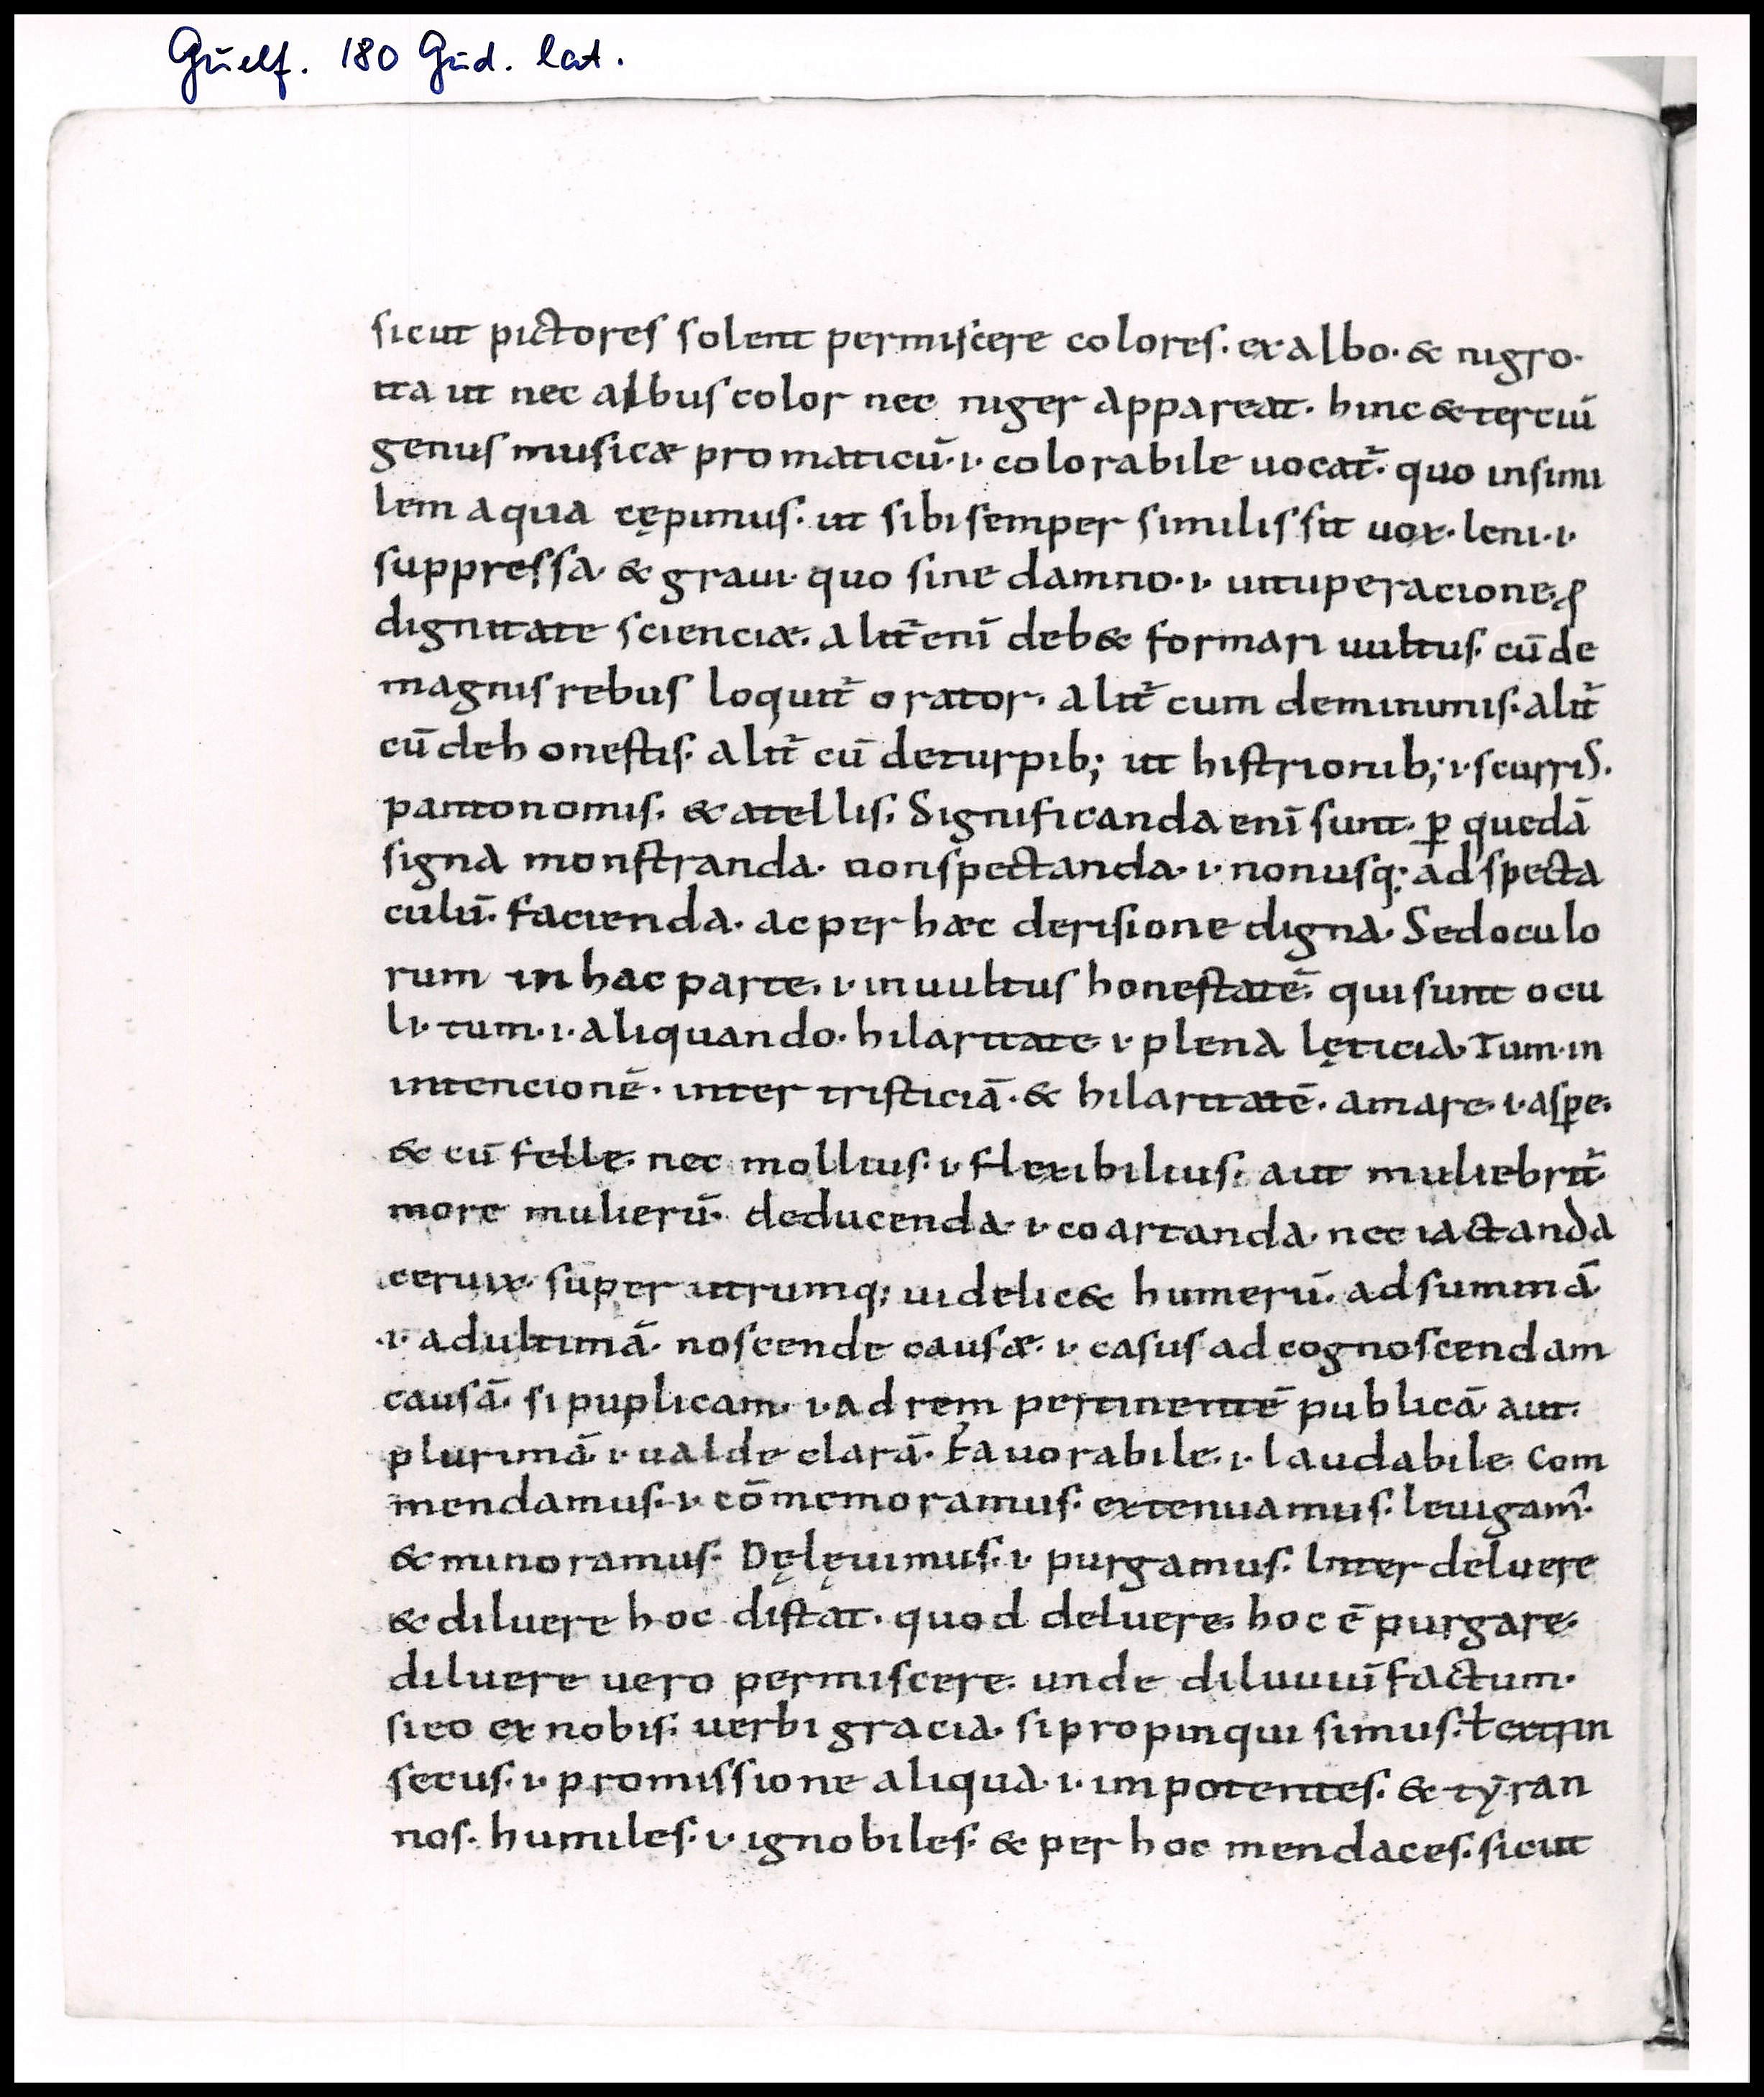 Guelf. 180 Gud. lat.
sicut pictores solent permiscere colores. ex albo. & nigro.
ita ut nec albus color nec niger appareat. hinc & terciū
genus musicæ promaticū. i. colorabile uocat̄. quo insimi
lem aqua cępimus. ut sibi semper similis sit uox. leni. i.
suppressa. & graui. quo sine damno. i. uituperacione.
dignitate scienciæ. alit̄ enī deb& formari uultus. cū de
magnis rebus loquit̄ orator. alit̄ cum deminimis. alit̄
cū dehonestis. alit̄ cū deturpib; ut histrionib; i. scurris.
pantonomis. & atellis. Significanda enī sunt. ꝑ quedā
signa monstranda. nonspectanda. i. nonusq; ad specta
culū. facienda. ac per hæc derisione digna. Sed oculo
rum in hac parte. i. inuultus honestatē. qui sunt ocu
li. tum. i. aliquando. hilaritate. i. plena lęticia. Tum. in
intencionē. inter tristiciā. & hilaritatē. amare. i. asꝑe.
& cū felle. nec mollius. i. flexibilius. aut muliebrit̄
more mulierū. deducenda. i. coartanda. nec iactanda
ceruix. super utrumq; uidelic& humerū. ad summā
.i. ad ultimā. noscende causæ. i. casus ad cognoscendam
causā. si puplicam. i. ad rem pertinentē publicā aut.
plurimā. i. ualde clarā. fauorabile. i. laudabile. Com
mendamus. i. cōmemoramus. extenuamus. leuigam̄.
& minoramus. Dęlęuimus. i. purgamus. Inter deluere
& diluere hoc distat. quod deluere. hoc ē purgare.
diluere uero permiscere. unde diluuiū factum.
si eo ex nobis. uerbi gracia. si propinqui simus. ł extrin
secus. i. promissione aliqua. i. impotentes. & tyran
nos. humiles. i. ignobiles. & per hoc mendaces. sicut